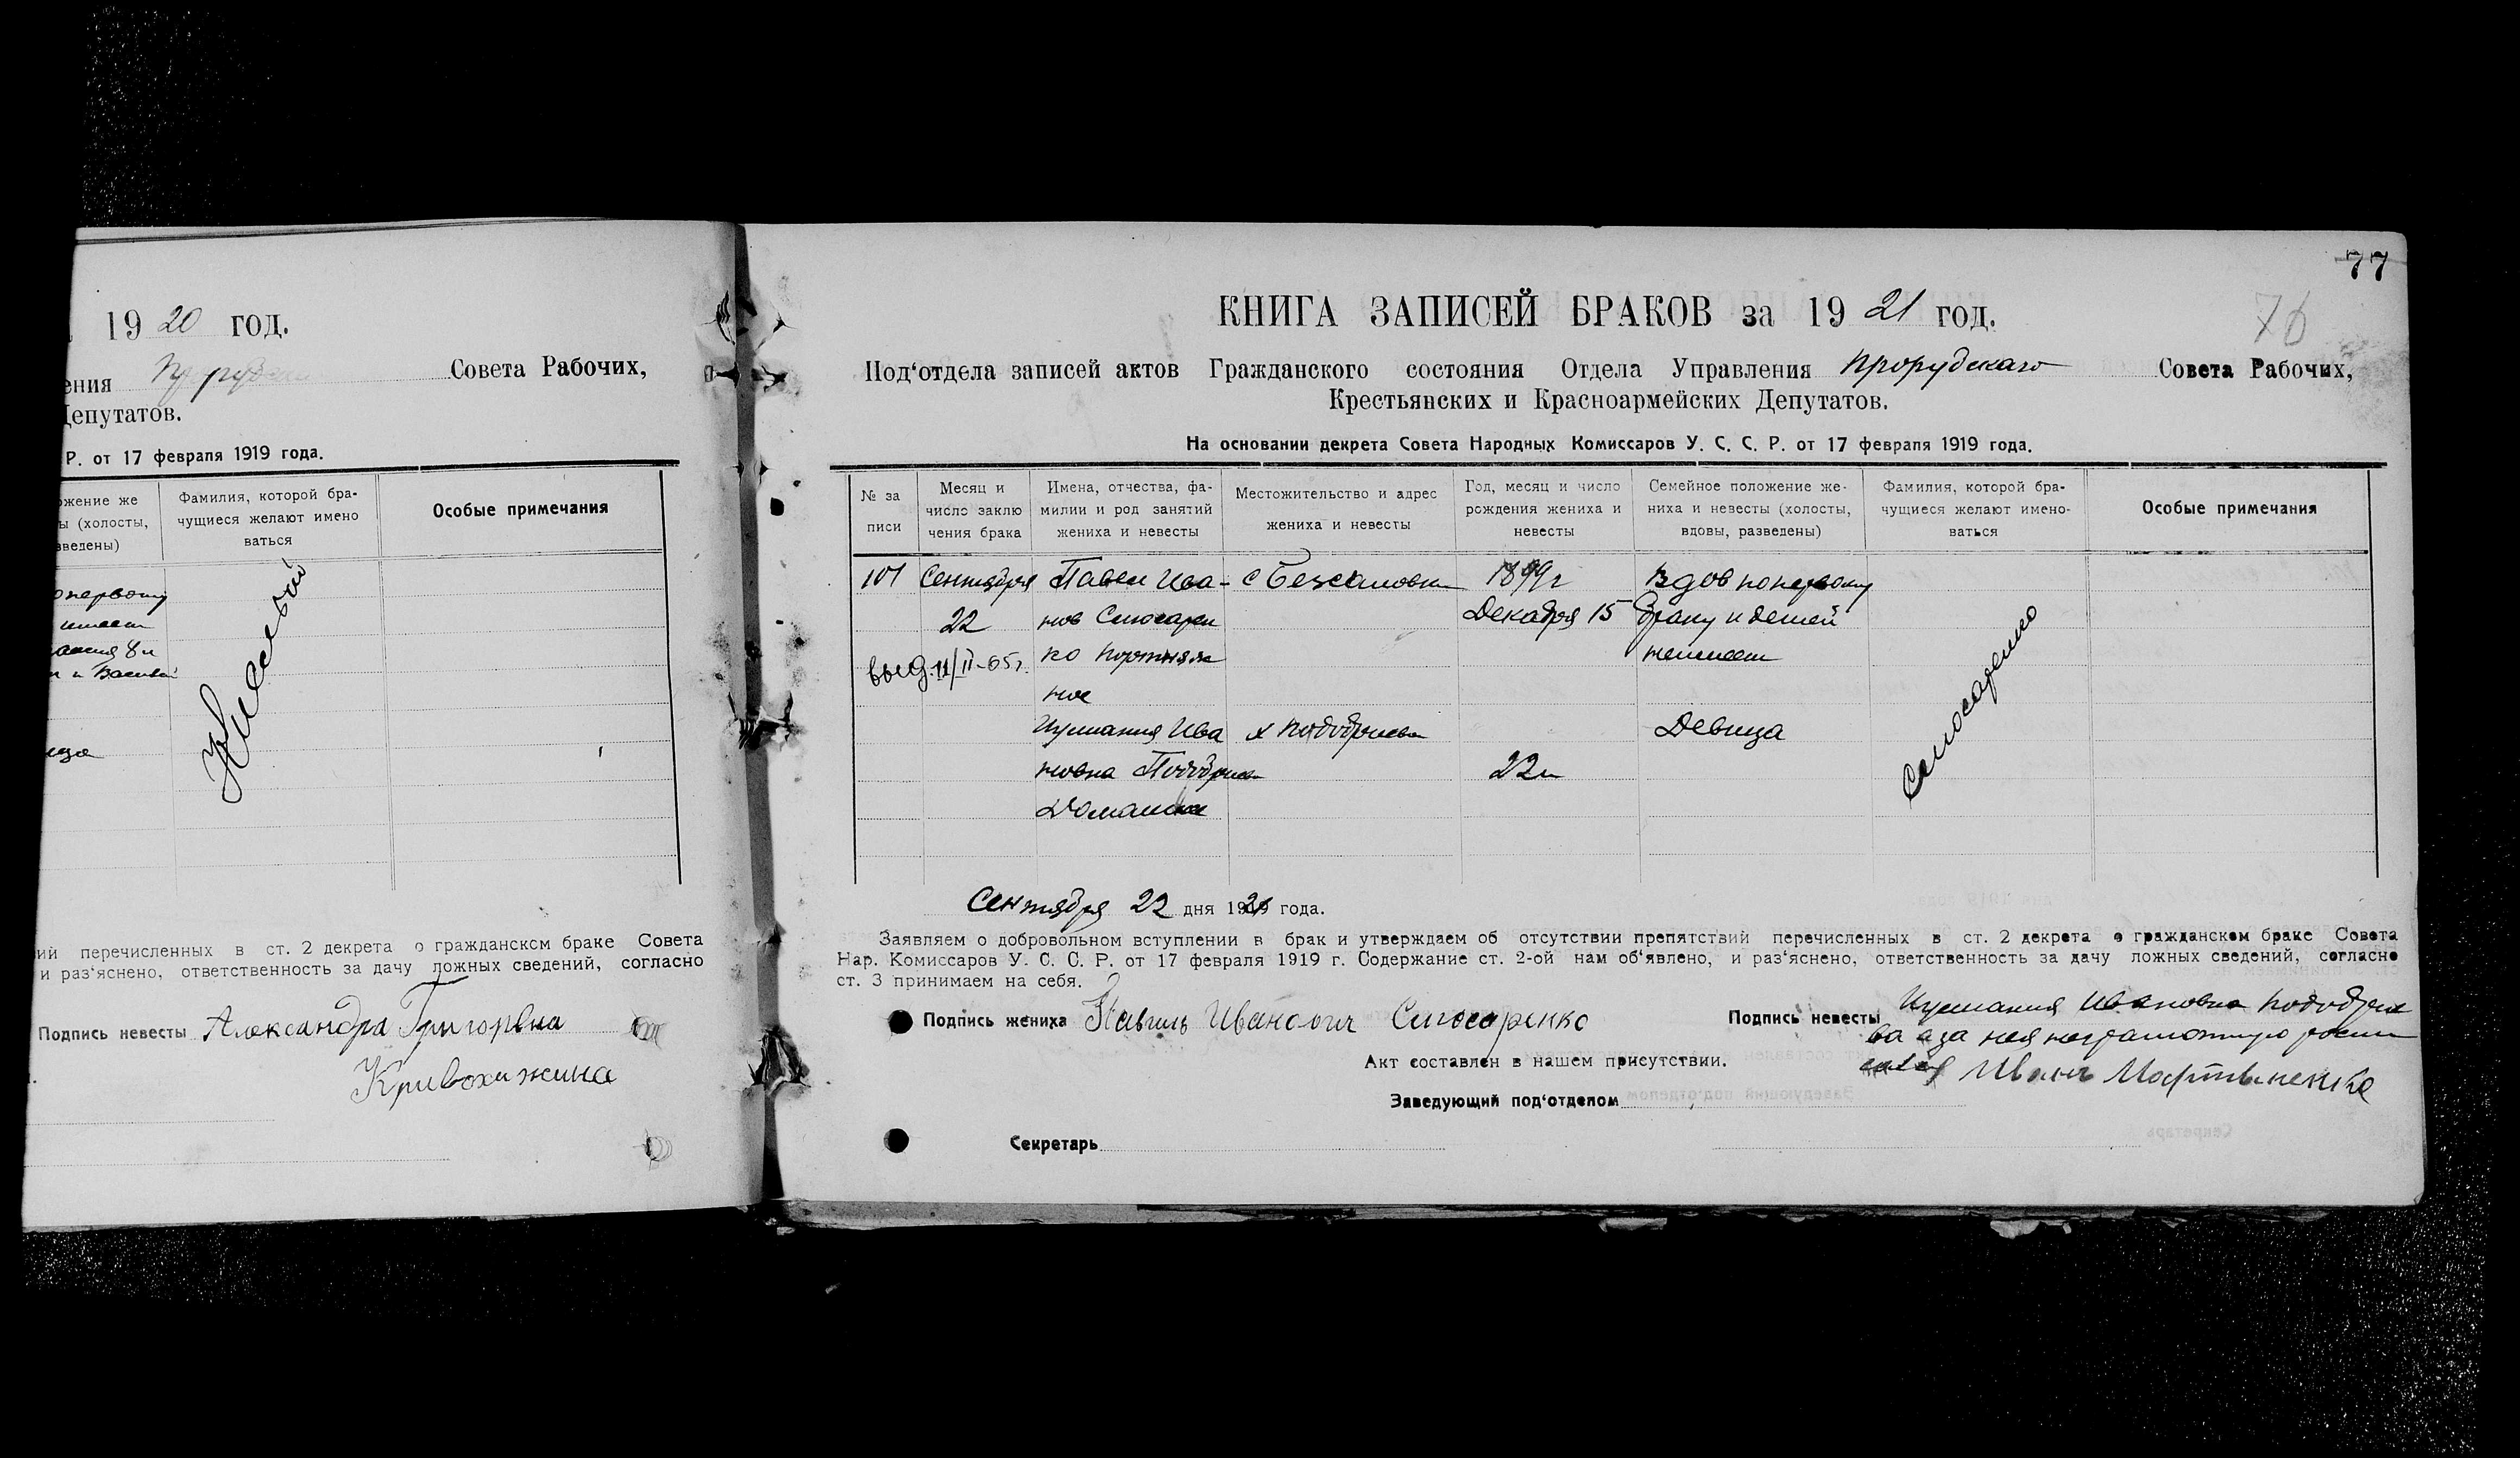 19 20 год.
ения Совета Рабочих,
Депутатов.
Р. от 17 февраля 1919 года.
ожение же
ы (холосты,
зведены)
Фамилия, которой бра-
чущиеся желают имено
ваться
Особые примечания
опервому
имеет
8 л
и Васили
ица
ий перечисленных в ст. 2 декрета о гражданском браке Совета
и раз‘яснено, ответственность за дачу ложных сведений, согласно
Подпись невесты Александра Григорвна
Кривохижина
77
76
КНИГА ЗАПИСЕЙ БРАКОВ за 19 21 год.
Под‘отдела записей актов Гражданского состояния Отдела Управления Прорубскаго Совета Рабочих,
Крестьянских и Красноармейских Депутатов.
На основании декрета Совета Народных Комиссаров У. С. С. Р. от 17 февраля 1919 года.
№ за
писи
Месяц и
число заклю
чения брака
Имена, отчества, фа-
милии и род занятий
жениха и невесты
Местожительство и адрес
жениха и невесты
Год, месяц и число
рождения жениха и
невесты
Семейное положение же-
ниха и невесты (холосты,
вдовы, разведены)
Фамилия, которой бра-
чущиеся желают имено-
ваться
Особые примечания
101 Сентября Павел Ива- с 1899 г Вдов попервому
22 нов Слюсарен Декабря 15 браку и детей
выд. 11/II-65г. ко неимеет
Слюсаренко
Ива х Девица
новна 22 л
Домашн
Сентября 22 дня 1921 года.
Заявляем о добровольном вступлении в брак и утверждаем об отсутствии препятствий перечисленных в ст. 2 декрета о гражданском браке Совета
Нар. Комиссаров У. С. С. Р. от 17 февраля 1919 г. Содержание ст. 2-ой нам об‘явлено, и раз‘яснено, ответственность за дачу ложных сведений, согласно
ст. 3 принимаем на себя.
Подпись жениха Павиль Иванович Слюсаренко
Подпись невесты Ивановна
ва а за нея неграмотную роспи
Иван Мартыненко
Акт составлен в нашем присутствии.
Заведующий под‘отделом
Секретарь